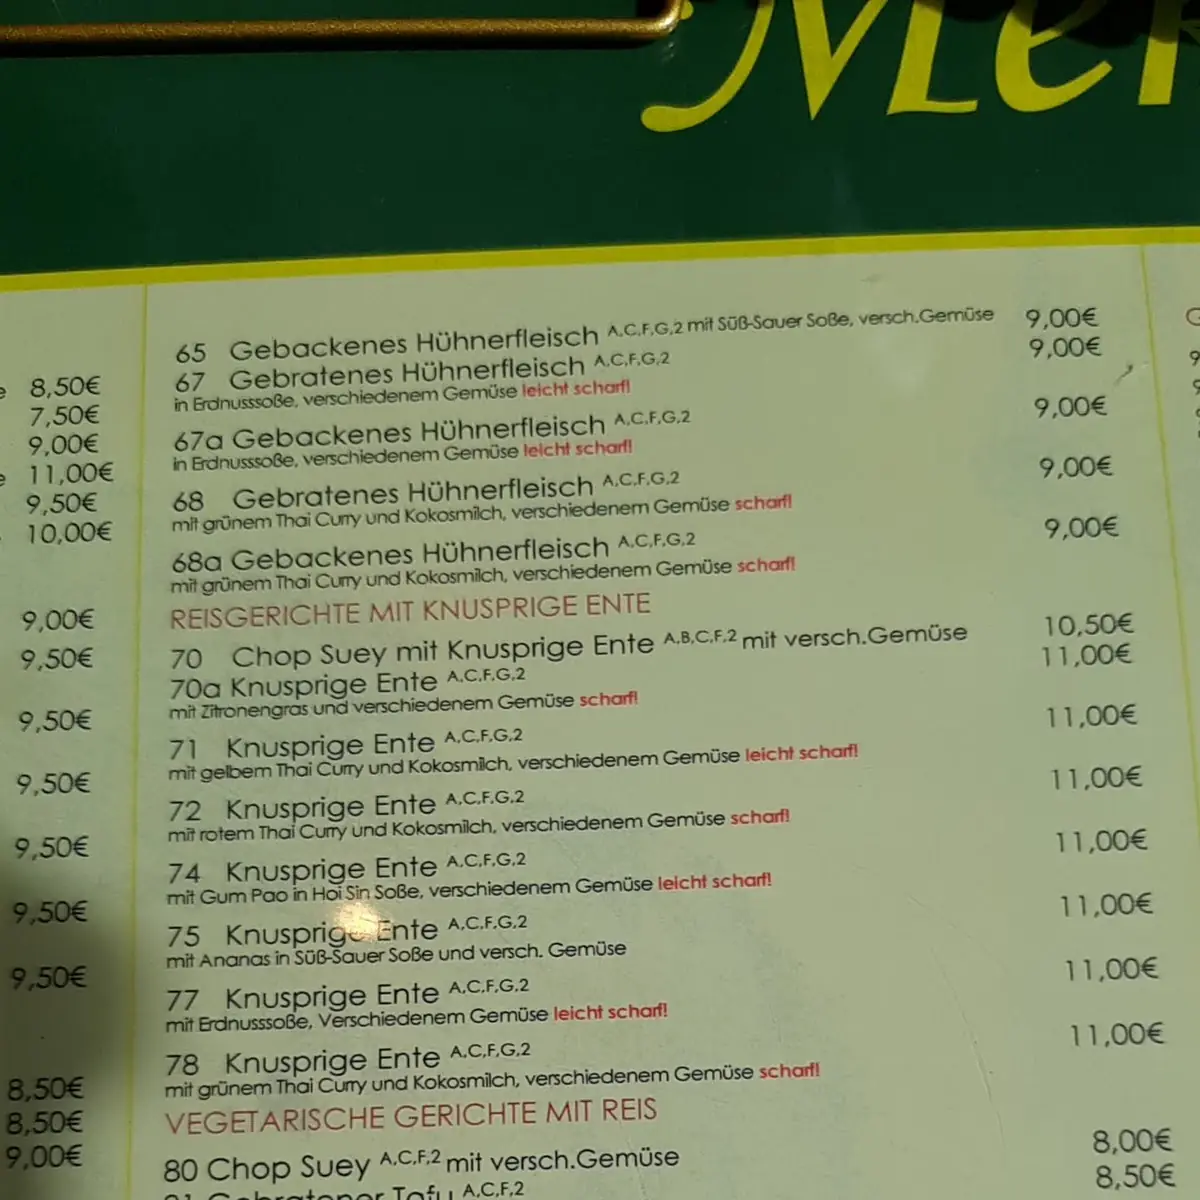 8,50€
7,50€
9,00€
11,00€
9,50€
10,00€
9,00€
9,50€
9,50€
9,50€
9,50€
9,50€
9,50€
8,50€
8,50€
9,00€
65 Gebackenes Hühnerfleisch A,C,F,G,2 mit Süß-Sauer Soße, versch.Gemüse 9,00€
67 Gebratenes Hühnerfleisch A,C,F,G,2 9,00€
in Erdnusssoße, verschiedenem Gemüse leicht scharf!
67a Gebackenes Hühnerfleisch A,C,F,G,2 9,00€
in Erdnusssoße, verschiedenem Gemüse leicht scharf!
68 Gebratenes Hühnerfleisch A,C,F,G,2 9,00€
mit grünem Thai Curry und Kokosmilch, verschiedenem Gemüse scharf!
68a Gebackenes Hühnerfleisch A,C,F,G,2 9,00€
mit grünem Thai Curry und Kokosmilch, verschiedenem Gemüse scharf!
REISGERICHTE MIT KNUSPRIGE ENTE
70 Chop Suey mit Knusprige Ente A,B,C,F,2 mit versch.Gemüse 10,50€
70a Knusprige Ente A,C,F,G,2 11,00€
mit Zitronengras und verschiedenem Gemüse scharf!
71 Knusprige Ente A,C,F,G,2 11,00€
mit gelbem Thai Curry und Kokosmilch, verschiedenem Gemüse leicht scharf!
72 Knusprige Ente A,C,F,G,2 11,00€
mit rotem Thai Curry und Kokosmilch, verschiedenem Gemüse scharf!
74 Knusprige Ente A,C,F,G,2 11,00€
mit Gum Pao in Hoi Sin Soße, verschiedenem Gemüse leicht scharf!
75 Knusprige Ente A,C,F,G,2 11,00€
mit Ananas in Süß-Sauer Soße und versch. Gemüse
77 Knusprige Ente A,C,F,G,2 11,00€
mit Erdnusssoße, Verschiedenem Gemüse leicht scharf!
78 Knusprige Ente A,C,F,G,2 11,00€
mit grünem Thai Curry und Kokosmilch, verschiedenem Gemüse scharf!
VEGETARISCHE GERICHTE MIT REIS
80 Chop Suey A,C,F,2 mit versch.Gemüse 8,00€
81 Gebratener Tofu A,C,F,2 8,50€